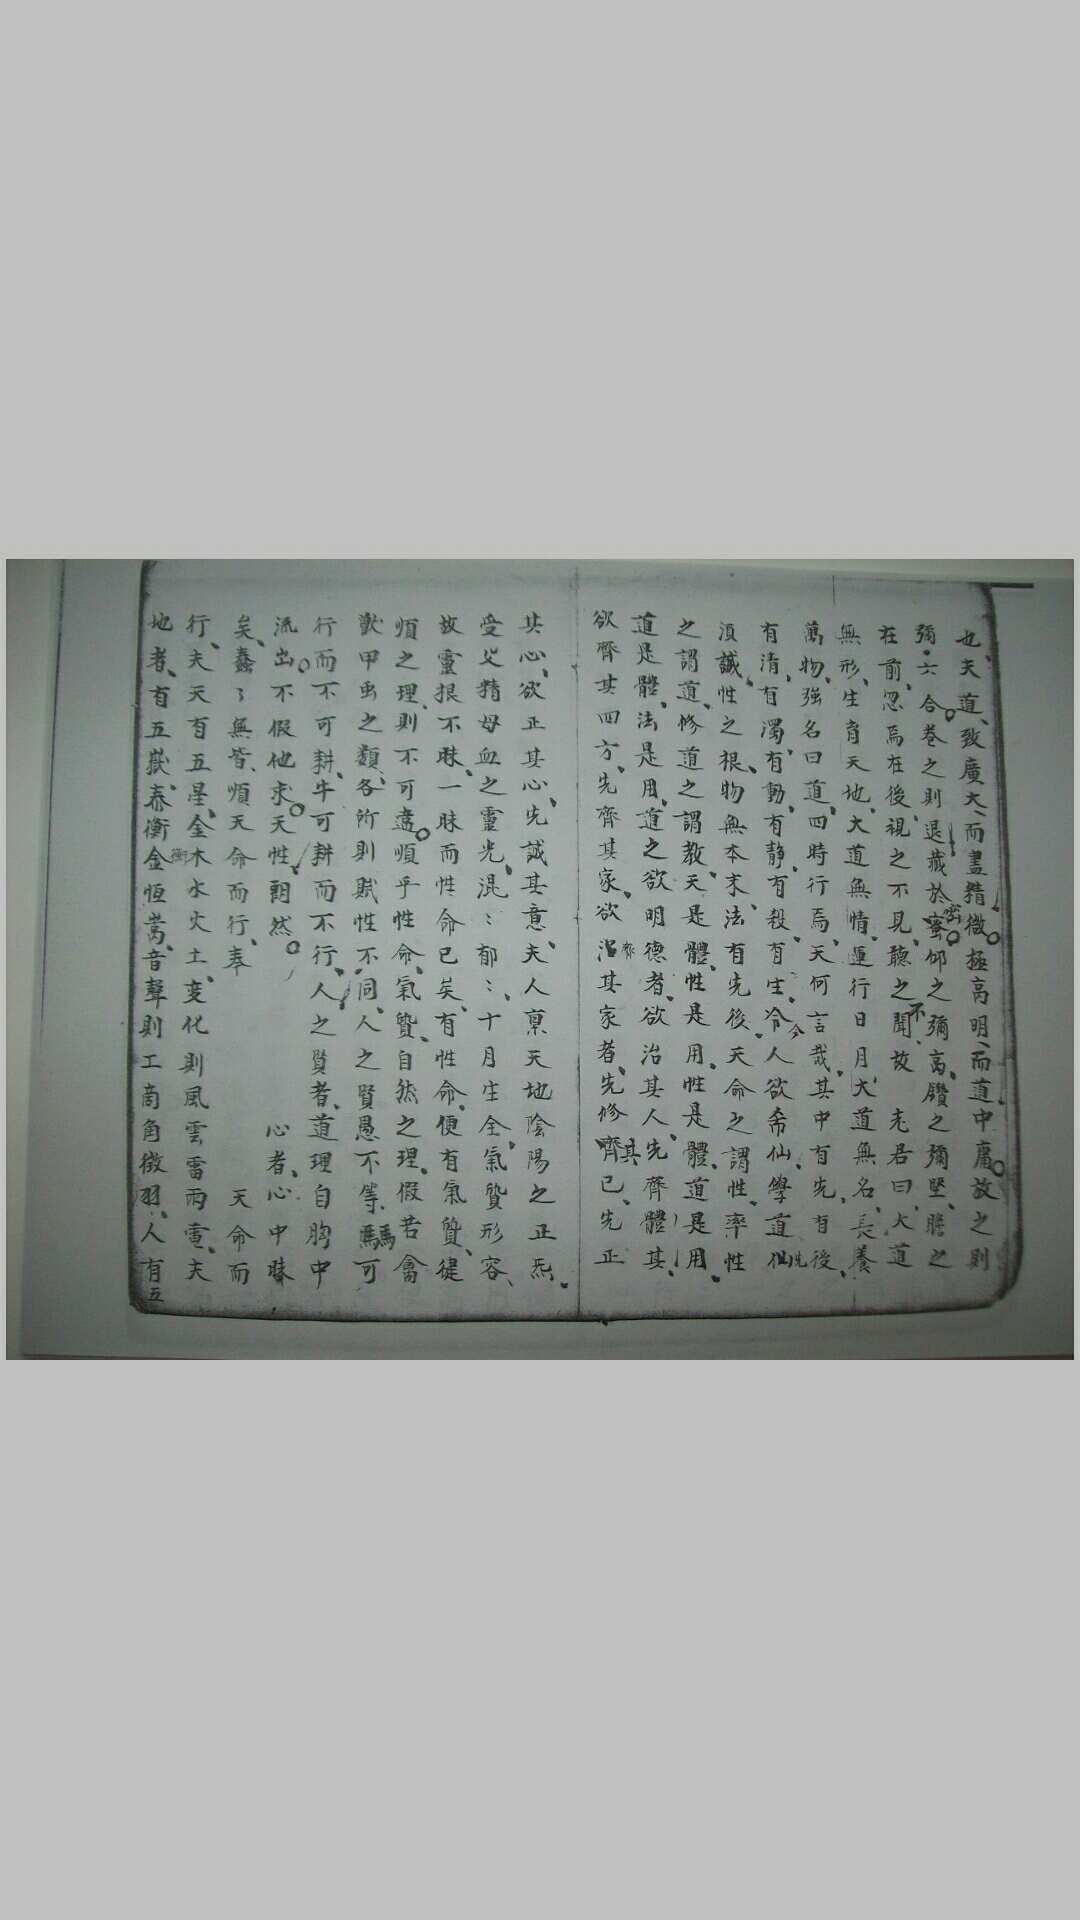 也、天道、致廣大、而盡精微。極高明、而道中庸。故之則
彌。六合。卷之則退藏於蜜密。仰之彌高、鑽之彌堅、瞻之
在前、忽焉在後、視之不見、聽之不聞、故 老君曰、大道
無形、生育天地、大道無情、運行日月、大道無名、長養
萬物、强名曰道、四時行焉、天何言哉、其中有先、有後、
有清、有濁、有動、有静、有殺、有生、冷今人欲希仙、學道
須誠、性之根、物無本末、法有先後、天命之謂性、率性
之謂道、修道之謂教、天是體、性是用、性是體、道是用、
道是體、法是用、道之欲明德者、欲治其人、先齊體其、
欲齊其四方、先齊其家、欲齊其家者、先修齊其已、先正
其心、欲正其心、先誠其意、夫人禀天地陰陽之正炁、
受父精母血之靈光、混〻郁〻、十月生全、氣質形容、
故靈根不昧、一昧而性命已矣、有性命、便有氣質、徤
順之理、則不可盡。順乎性命、氣質、自然之理、假若禽
獸甲虫之類、各所則賦性不同、人之賢愚不等、馬可
行而不可耕、牛可耕而不行、人之賢者、道理自胸中
流出。不假他求。天性朗然。 心者、心中昧
矣、蠢〻無皆、順天命而行、奉 天命而
行、夫天有五星、金木水火土、变化則風雲雷雨電、夫
地者、有五嶽、泰衡金恒嵩、音聲則工商角徵羽、人有五